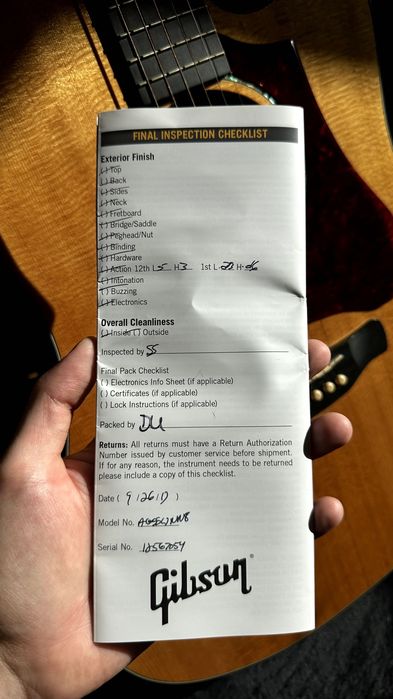 FINAL INSPECTION CHECKLIST
Exterior Finish
( ) Top
( ) Back
( ) Sides
( ) Neck
( ) Fretboard
( ) Bridge/Saddle
( ) Peghead/Nut
( ) Binding
( ) Hardware
( ) Action 12th L H3 1st L H
( ) Intonation
( ) Buzzing
( ) Electronics
Overall Cleanliness
( ) Inside ( ) Outside
Inspected by SS
Final Pack Checklist
( ) Electronics Info Sheet (if applicable)
( ) Certificates (if applicable)
( ) Lock Instructions (if applicable)
Packed by
Returns: All returns must have a Return Authorization
Number issued by customer service before shipment.
If for any reason, the instrument needs to be returned
please include a copy of this checklist.
Date ( )
Model No.
Serial No. 12567054
Gibson®